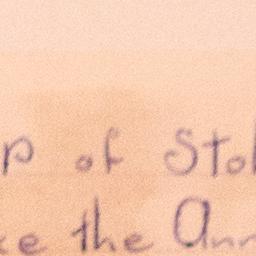 p of Stol
ke the Ann